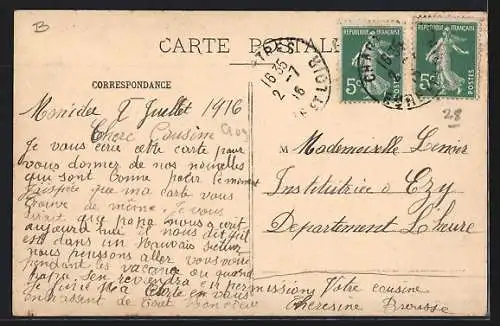 B
CARTE POSTALE
REPUBLIQUE FRANÇAISE
REPUBLIQUE FRANÇAISE
5c POSTES
5c POSTES
16 35
2 - 7
16
CORRESPONDANCE
28
Juillet 1916
Chere Cousine
Je vous écrie cette carte pour
vous donner de nos nouvelles
qui sont bonne pour le moment
J'espère que ma carte vous
trouve de même. Je vous
dirait que papa nous a écrit
aujourd hui il nous dit qu'il
est dans un mauvais secteur
nous pensons aller vous voir
pendant les vacances ou quand
papa s'en reviendra en permission
Je finie ma carte en vous
embrassent de tout
Votre cousine
Theresine Brousse
M Mademoiselle Lenoir
Institutrice à Ezy
Departement L'heure